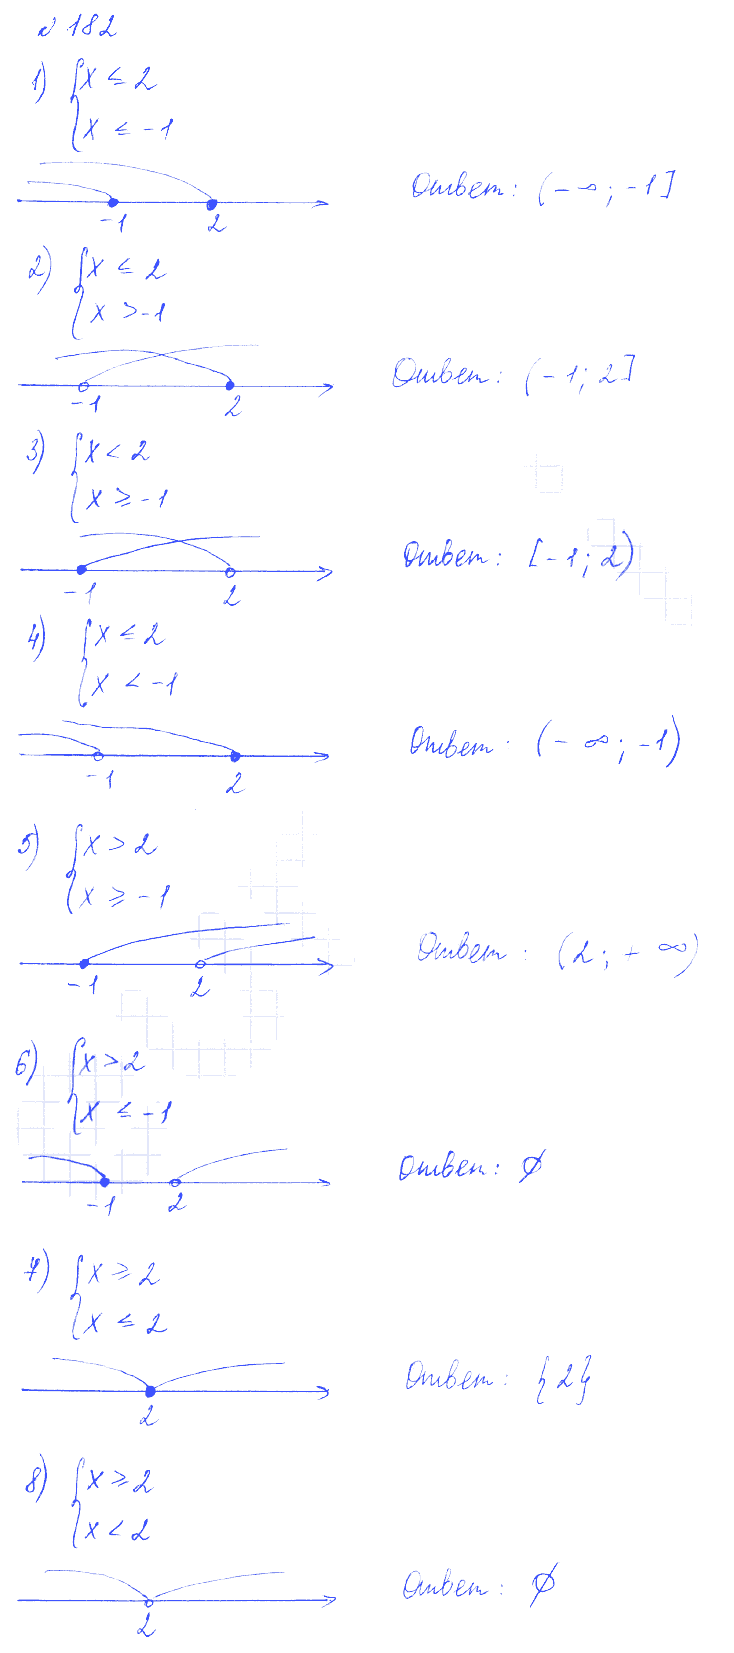 № 182
1) { x ≤ 2
x ≤ -1
-1 2
Ответ: (-∞; -1]
2) { x ≤ 2
x > -1
-1 2
Ответ: (-1; 2]
3) { x < 2
x ≥ -1
-1 2
Ответ: [-1; 2)
4) { x ≤ 2
x < -1
-1 2
Ответ: (-∞; -1)
5) { x > 2
x ≥ -1
-1 2
Ответ: (2; +∞)
6) { x > 2
x ≤ -1
-1 2
Ответ: ∅
7) { x ≥ 2
x ≤ 2
2
Ответ: {2}
8) { x ≥ 2
x < 2
2
Ответ: ∅